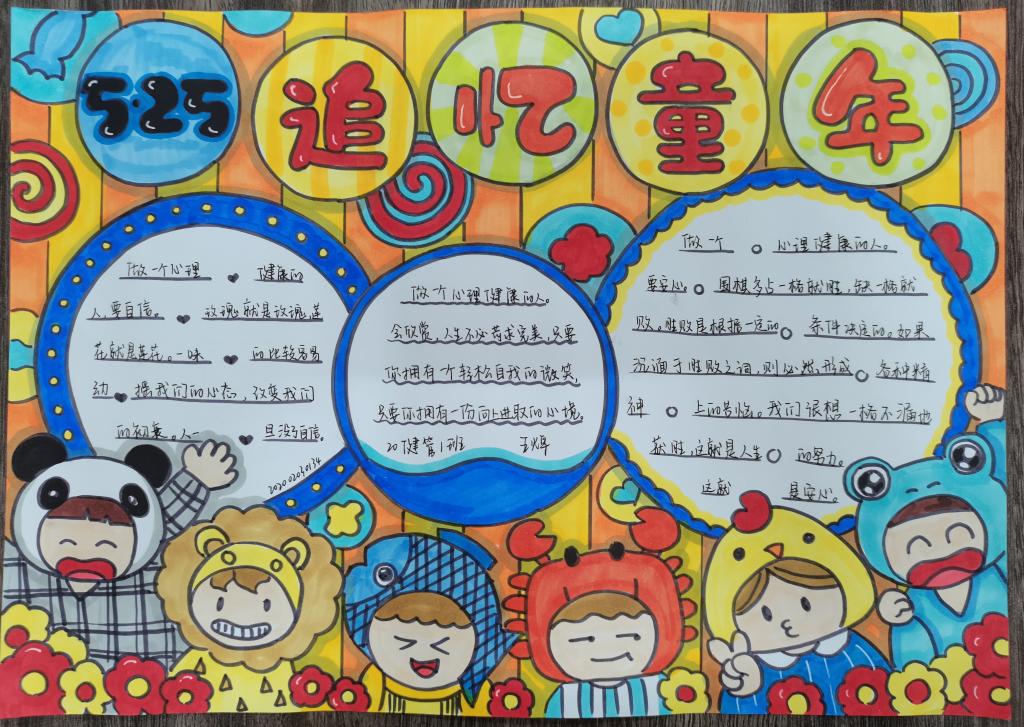 5·25 追忆童年
做一个心理 健康的
人,要自信。 玫瑰就是玫瑰,莲
花就是莲花。一味 的比较容易
动 摇我们的心态,改变我们
的初衷。人一 旦没了自信。
2020020134
做一个心理健康的人。
会欣赏,人生不必苛求完美,只要
你拥有一个轻松自我的微笑,
只要你拥有一份向上进取的心境,
20健管1班 王焯
做一个 心理健康的人。
要安心。 围棋多占一格就胜,缺一格就
败。胜败是根据一定的 条件决定的。如果
沉湎于胜败之词,则必然形成 各种精
神 上的苦恼。我们很想一格不漏地
获胜,这就是人生 的努力。
这就 是安心。